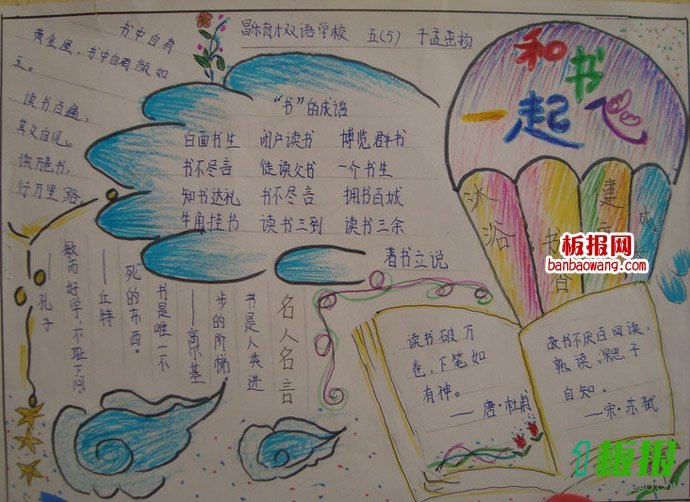 昌乐育才双语学校 五(5)
和书
一起飞
书中自有
黄金屋，书中自有颜如
玉。
读书百遍，
其义自见。
读万卷书，
行万里路
“书”的成语
白面书生 闭户读书 博览群书
书不尽言 徒读父书 一个书生
知书达礼 书不尽言 拥书百城
牛角挂书 读书三到 读书三余
著书立说
沐浴
书香
建
成
板报网
banbaowang.com
名人名言
书是人类进
步的阶梯。
——高尔基
书是唯一不
死的东西。
——丘特
敏而好学，不耻下问
——孔子
读书破万
卷，下笔如
有神。
——唐·杜甫
故书不厌百回读，
熟读深思子
自知。
——宋·苏轼
板报
BAO.COM